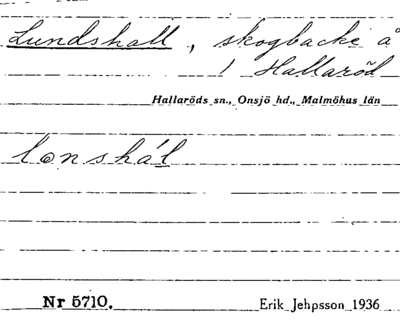 Lundshall, skogbacke å
1 Hallaröd
Hallaröds sn., Onsjö hd., Malmöhus län
lonshál
Nr 5710.
Erik Jehpsson 1936